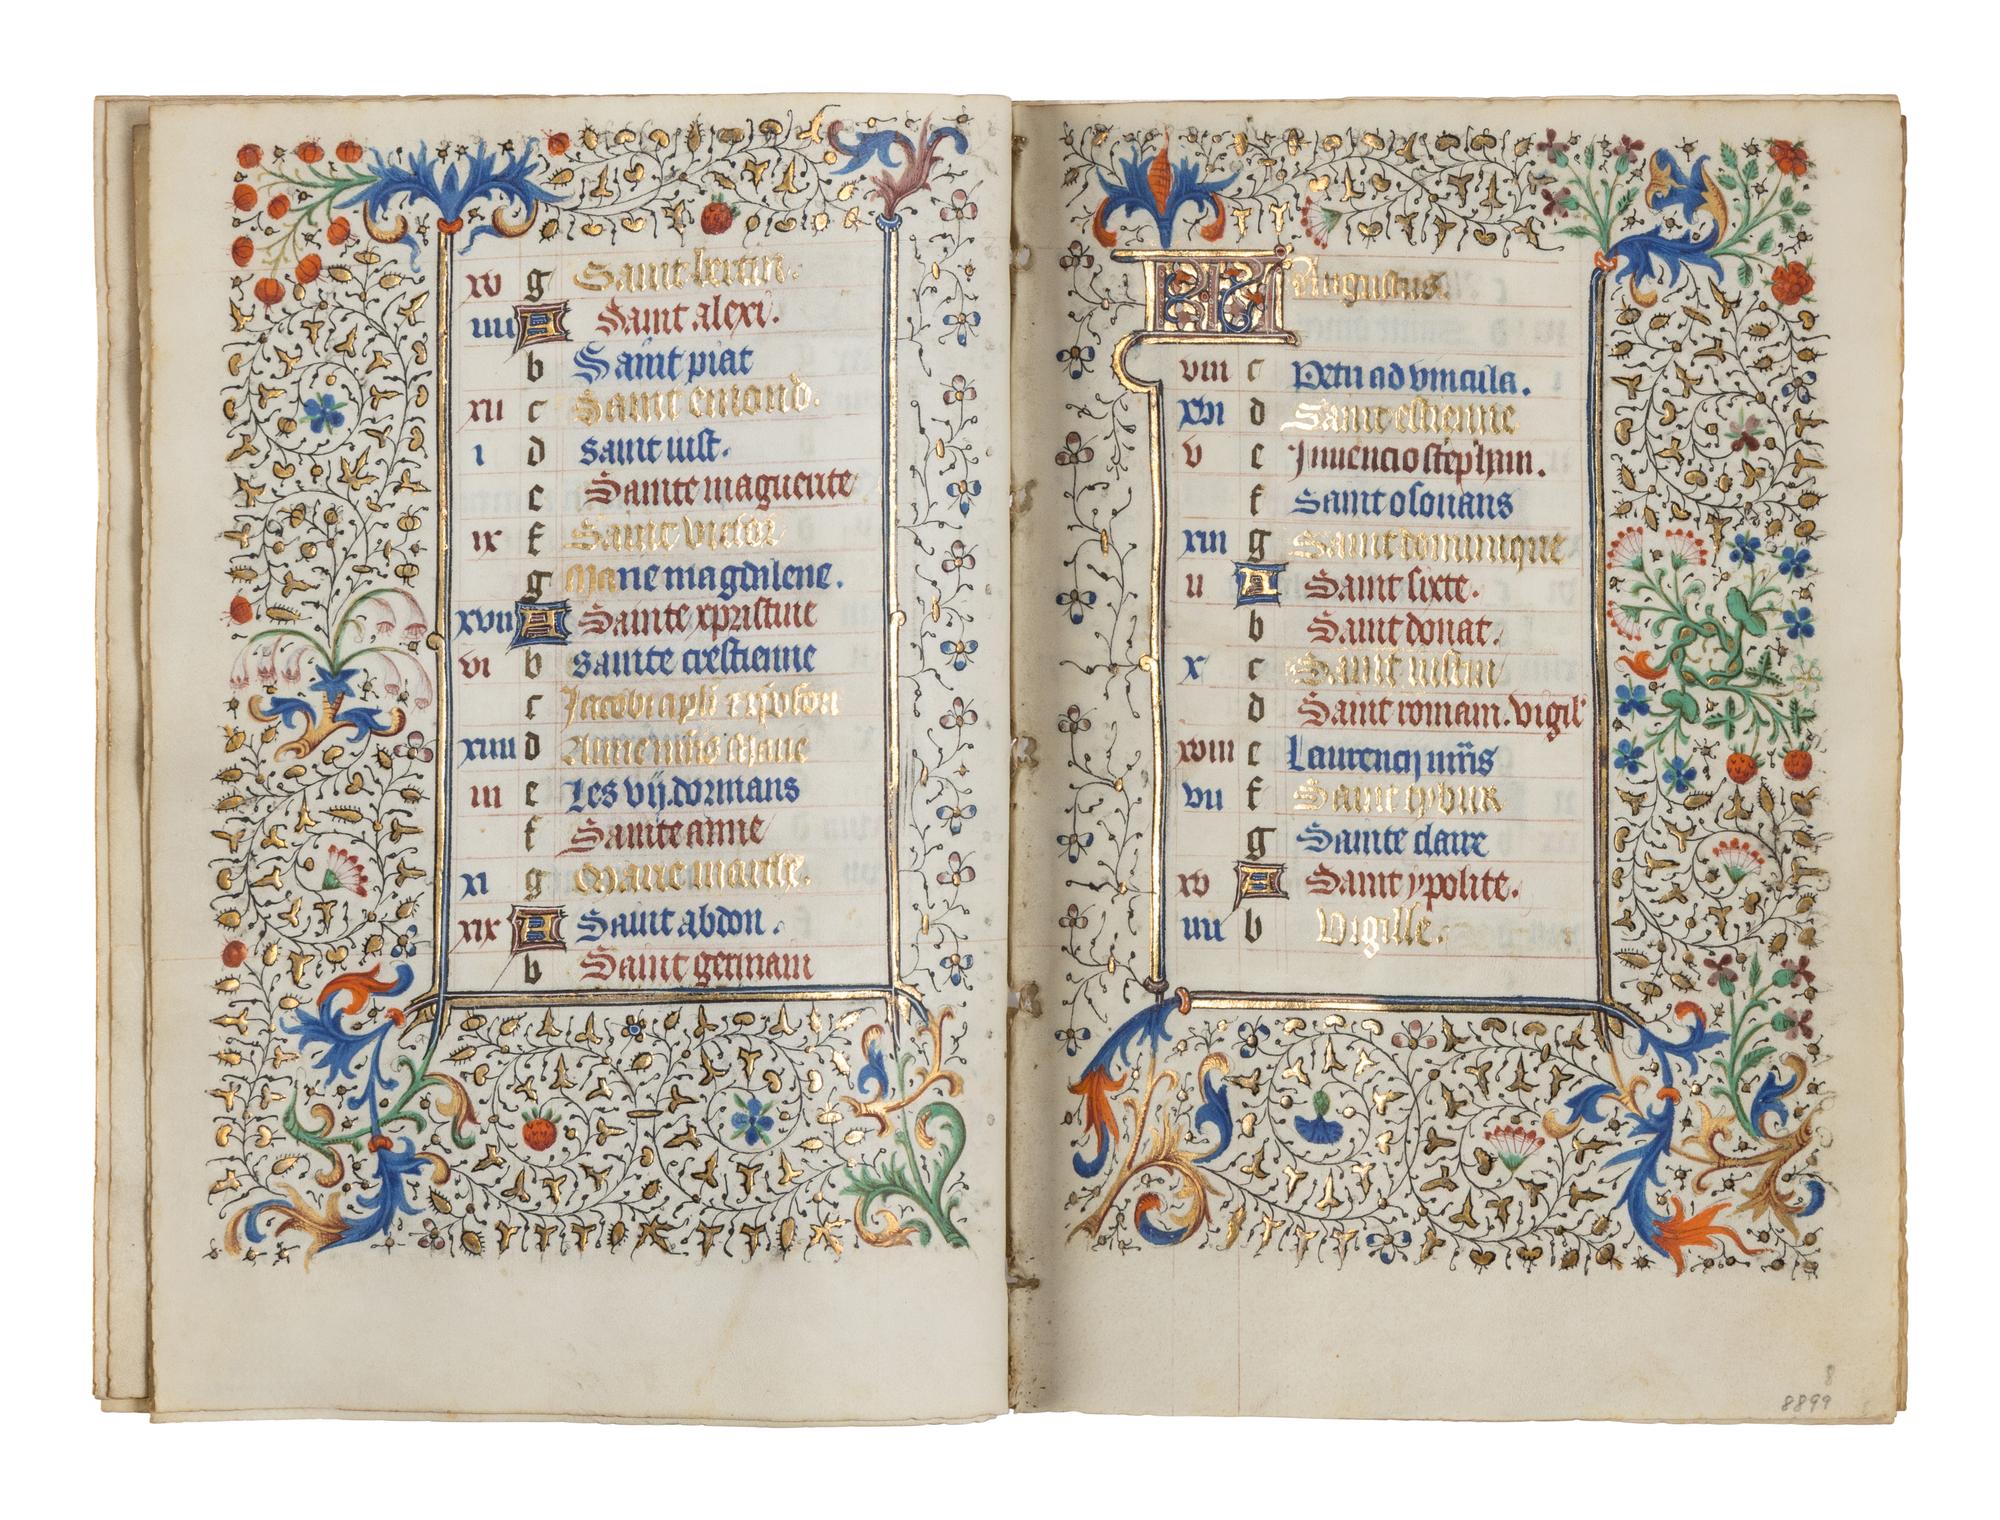 xv g Saint bertin.
iiii A Saint alexi.
b Saint piat
xii c Saint emond.
i d saint iust.
e Sainte maguerite
ix f Saint victor
g Marie magdilene.
xvii A Sainte xpristine
vi b sainte crestienne
c Jacobi apli xpofori
xiiii d Anne mris Marie
iii e Les vij. dormans
f Sainte anne
xi g Marie marthe.
xix A Saint abdon.
b Saint germain
KL Augustus.
viii c Petri ad vincula.
xvi d Saint estienne
v e Inuencio stephini.
f Saint osouans
xiii g Saint dominique
ii A Saint sixte.
b Saint donat.
x c Saint iustin
d Saint romain. vigil'
xviii e Laurencij mris
vii f Saint tybur
g Sainte claire
xv A Saint ypolite.
iiii b Vigille.
8
8899